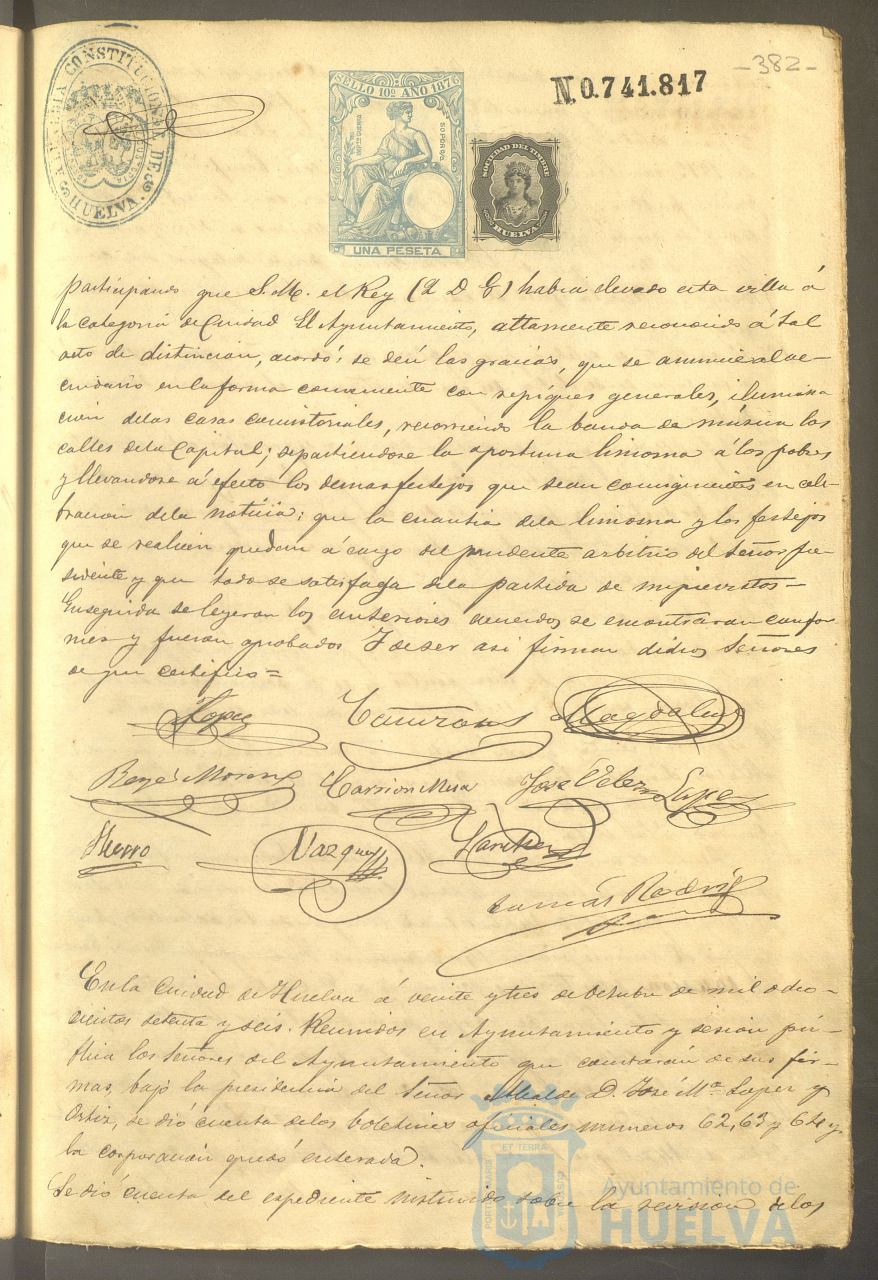 ALCALDIA CONSTITUCIONAL DE HUELVA.
SELLO 10º AÑO 1876
UNA PESETA
SOCIEDAD DEL TIMBRE
HUELVA
N 0.741.817
-382-
participando que S. M. el Rey (Q D G) habia elevado esta villa á
la categoria de Ciudad El Ayuntamiento, altamente reconocido á tal
acto de distincion, acordó: se den las gracias, que se anuncie al ve-
cindario en la forma conveniente con repiques generales, ilumina
cion delas casas consistoriales, recorriendo la banda de música las
calles dela Capital; repartiendose la oportuna limosna á los pobres
y llevandose á efecto los demas festejos que sean consiguientes en cele-
bracion dela noticia: que la cuantia dela limosna y los festejos
que se realicen quedan á cargo del prudente arbitrio del Señor Pre-
sidente y que todo se satisfaga dela partida de imprevistos-
Enseguida se leyeron los anteriores acuerdos se encontraron confor
mes y fueron aprobados Y de ser asi firman dichos Señores
de que certifico=
Lopez
Magdalena
Moreno
Carrion
José
Lopez
Hierro
Vazquez
Sanchez
Tomás Rodrig
En la Ciudad de Huelva á veinte y tres de Octubre de mil ocho-
cientos setenta y seis. Reunidos en Ayuntamiento y sesion pú-
blica los Señores del Ayuntamiento que constarán de sus fir-
mas, bajo la presidencia del Señor Alcalde D. José Mª Lopez y
Ortiz, se dió cuenta delos boletines oficiales numeros 62, 63 y 64 y
la corporacion quedó enterada.
Se dió cuenta del espediente instruido sobre la revision delos
Ayuntamiento de
HUELVA